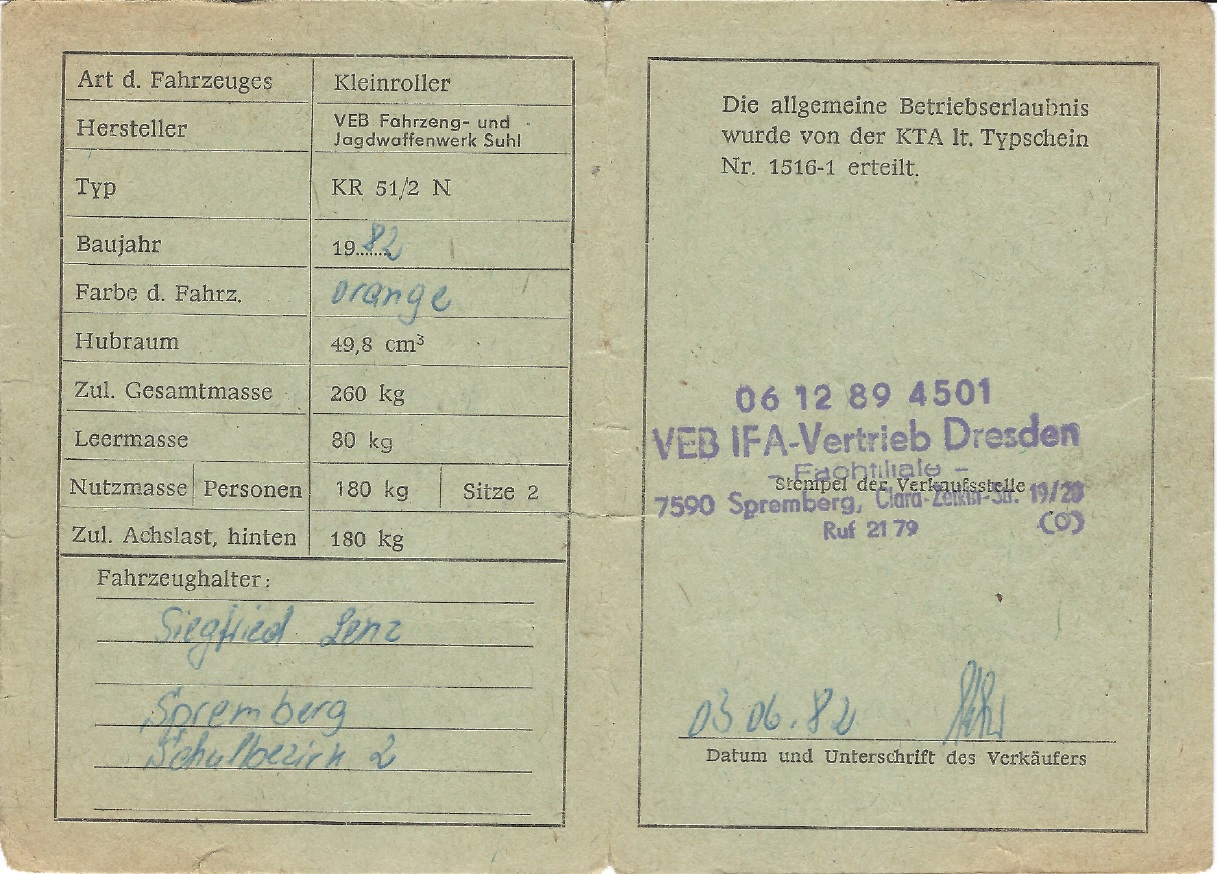 Art d. Fahrzeuges Kleinroller
Hersteller VEB Fahrzeng- und
Jagdwaffenwerk Suhl
Typ KR 51/2 N
Baujahr 19......82
Farbe d. Fahrz. orange
Hubraum 49,8 cm³
Zul. Gesamtmasse 260 kg
Leermasse 80 kg
Nutzmasse Personen 180 kg Sitze 2
Zul. Achslast, hinten 180 kg
Fahrzeughalter:
Siegfried Lenz
Spremberg
Schulbezirk 2
Die allgemeine Betriebserlaubnis
wurde von der KTA lt. Typschein
Nr. 1516-1 erteilt.
06 12 89 4501
VEB IFA-Vertrieb Dresden
- Fachfiliale -
Stempel der Verkaufsstelle
7590 Spremberg, Clara-Zetkin-Str. 19/20
Ruf 21 79 (0)
03 06. 82
Datum und Unterschrift des Verkäufers